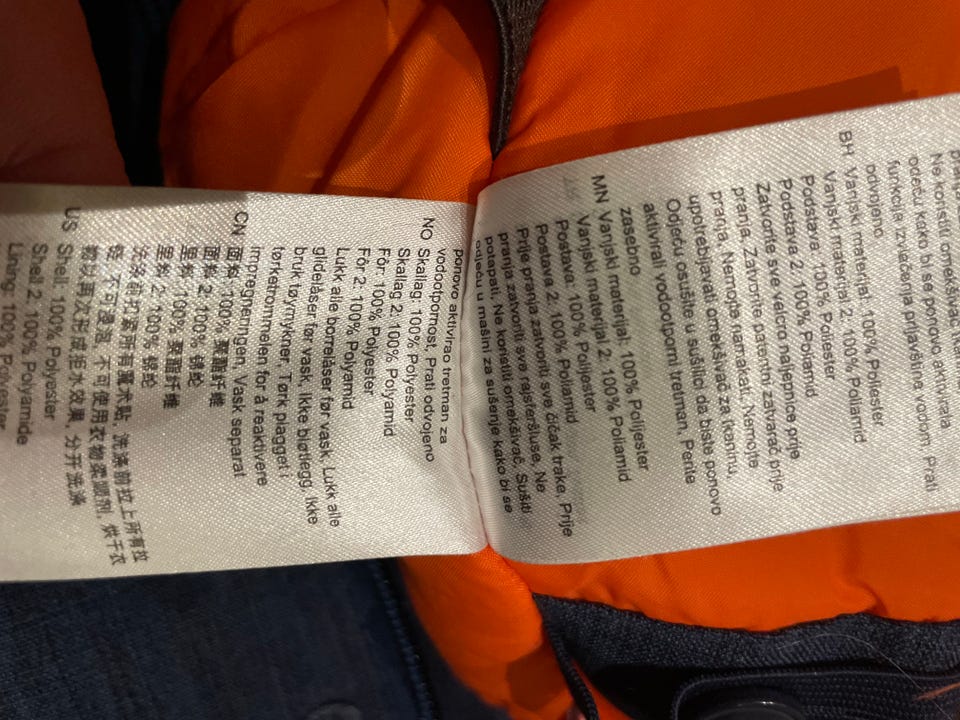 Ne koristiti omekšivač.
odeću kako bi se ponovo aktivirala
funkcija izvlačenja prljavština vodom. Prati
odvojeno.
BH Vanjski materijal: 100% Poliester
Vanjski materijal 2: 100% Poliamid
Podstava: 100% Poliester
Podstava 2: 100% Poliamid
Zatvorite sve velcro naljepnice prije
pranja. Zatvorite patentni zatvarač prije
pranja, Nemojte namakati, Nemojte
upotrebljavati omekšivač za tkaninu,
Odjeću osušite u sušilici da biste ponovo
aktivirali vodootporni tretman, Perite
zasebno
MN Vanjski materijal: 100% Polijester
Vanjski materijal 2: 100% Poliamid
Postava: 100% Polijester
Postava 2: 100% Poliamid
Prije pranja zatvoriti sve čičak trake, Prije
pranja zatvoriti sve rajsferšluse, Ne
potapati, Ne koristiti omekšivač, Sušiti
odjeću u mašini za sušenje kako bi se
ponovo aktivirao tretman za
vodootpornost, Prati odvojeno
NO Skallag: 100% Polyester
Skallag 2: 100% Polyamid
Fôr: 100% Polyester
Fôr 2: 100% Polyamid
Lukk alle borrelåser før vask, Lukk alle
glidelåser før vask, Ikke bløtlegg, Ikke
bruk tøymykner, Tørk plagget i
tørketrommelen for å reaktivere
impregneringen, Vask separat
CN 面料: 100% 聚酯纤维
面料 2: 100% 锦纶
里料: 100% 聚酯纤维
里料 2: 100% 锦纶
洗涤前扣紧所有魔术贴, 洗涤前拉上所有拉
链, 不可浸泡, 不可使用衣物柔顺剂, 烘干衣
物以再次形成拒水效果, 分开洗涤
US Shell: 100% Polyester
Shell 2: 100% Polyamide
Lining: 100% Polyester